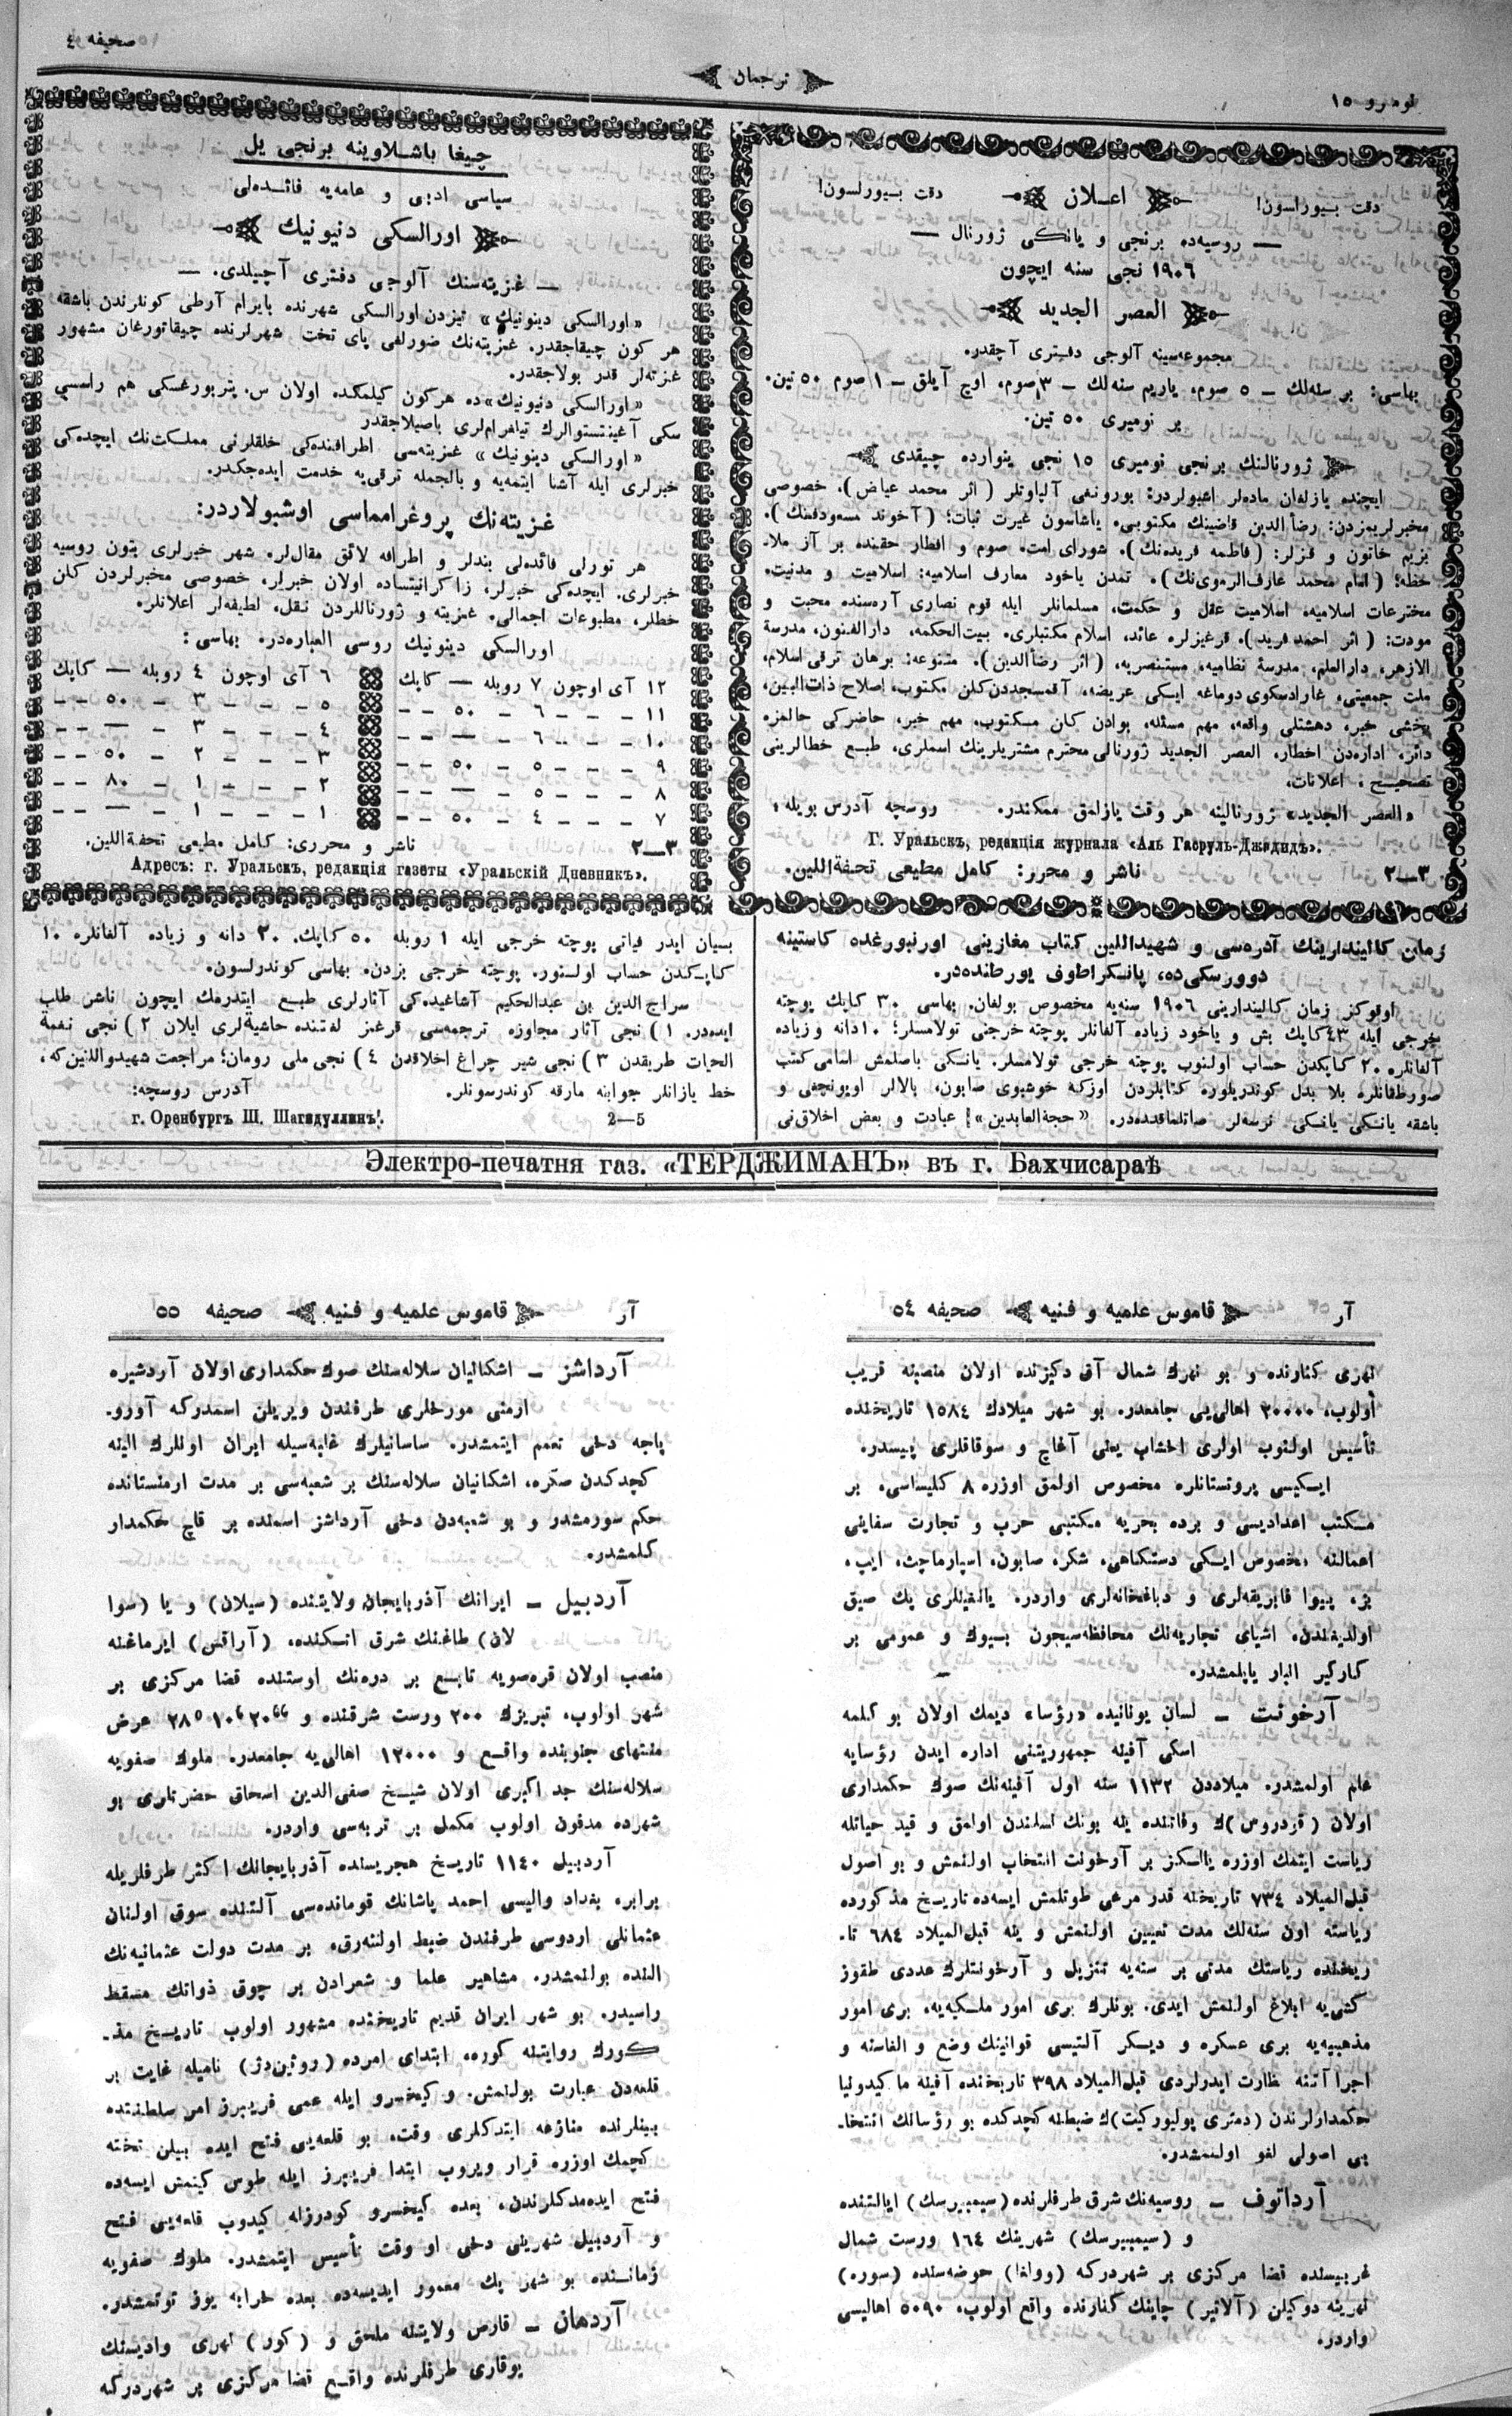 نومرو ١٥
ترجمان
صحیفه ٤
دقت بیورلسون!
اعلان
دقت بیورلسون!
— روسیه‌ده برنجی و یاڭی ژورنال —
١٩٠٦ نجی سنه ایچون
العصر الجدید
مجموعه‌سینه آلوجی دفتری آچقدر.
بهاسی: بر سنه‌لك — ٥ صوم، یاریم سنه‌لك — ٣ صوم، اوچ آیلق — ١ صوم ٥٠ تین.
بر نومیری ٥٠ تین.
ژورنالنك برنجی نومیری ١٥ نجی ینوارده چیقدی
ایچنده یازلغان ماده‌لر اشبولردر: بورونغی آلپاوتلر (اثر محمد عیاض). خصوصی
مخبرلریمزدن: رضأ الدین قاضینك مكتوبی. یاشاسون غیرت ثبات؛ (آخوند مسعودفنك).
بزیم خاتون و قزلر: (فاطمه فریده‌نك). شورای امت. صوم و افطار حقنده بر آز ملا-
حظه! (امام محمد عارف الرموی‌نك). تمدن یاخود معارف اسلامیه: اسلامیت و مدنیت.
مخترعات اسلامیه، اسلامیت عقل و حكمت، مسلمانلر ایله قوم نصاری آره‌سنده محبت و
مودت: (اثر احمد فرید). قرغیزلره عائد، اسلام مكتبلری. بیت الحكمه، دارالفنون، مدرسة
الازهر، دارالعلم، مدرسۀ نظامیه، مستنصریه، (اثر رضأ الدین). متنوعه: برهان ترقی اسلام،
ملت جمعیتی، غارادسكوی دوماغه ایسكی عریضه، آقمسجددن كلن مكتوب، اصلاح ذات البین،
یخشی خبر، دهشتلی واقعه، مهم مسئله، بوادن كان مكتوب، مهم خبر، حاضركی حالمزه
دائر، اداره‌دن اخطار، العصر الجدید ژورنالی محترم مشتریلرینك اسملری، طبع خطالرینی
تصحیح، اعلانات.
«العصر الجدید» ژورنالینه هر وقت یازلمق ممكندر. روسچه آدرس بویله:
Г. Уральскъ, редакція журнала «Аль Гасруль-Джадидъ».
٣—٢ ناشر و محرر: كامل مطیعی تحفة اللین.
چیغا باشلاوینه برنجی یل
سیاسی ادبی و عامه‌یه فائده‌لی
اورالسكی دنیونیك
— غزیته‌سنك آلوجی دفتری آچیلدی. —
«اورالسكی دینونیك» تیزدن اورالسكی شهرنده بایرام آرطی كونلرندن باشقه
هر كون چیقاجقدر. غزیته‌نك ضورلغی پای تخت شهرلرنده چیقاتورغان مشهور
غزته‌لر قدر بولاجقدر.
«اورالسكی دنیونیك»ده هركون كیلمكده اولان س. پتربورغسكی هم راسسی
سكی آغینتستوالرك تیلغرام‌لری باصیلاجقدر
«اورالسكی دینونیك» غزیته‌سی اطرافنده‌كی خلقلرنی مملكت‌نك ایچده‌كی
خبرلری ایله آشنا ایتمه‌یه و بالجمله ترقی‌یه خدمت ایده‌جكدر.
غزیته‌نك پروغرامماسی اوشبولاردر:
هر تورلی فائده‌لی بندلر و اطرافه لائق مقال‌لر. شهر خبرلری بتون روسیه
خبرلری. ایچده‌كی خبرلر، زاكرانیتساده اولان خبرلر، خصوصی مخبرلردن كلن
خطلر، مطبوعات اجمالی، غزیته و ژورناللردن نقل، لطیفه‌لر اعلانلر.
اورالسكی دینونیك روسی العباره‌در. بهاسی:
١٢ آی اوچون ٧ روبله — كاپك
١١ - - - ٦ - ٥٠ - -
١٠ - - - ٦ - — - -
٩ - - - ٥ - ٥٠ - -
٨ - - - ٥ - — - -
٧ - - - ٤ - ٥٠ - -
٦ آی اوچون ٤ روبله — كاپك
٥ - - - ٣ - ٥٠ - -
٤ - - - ٣ - — - -
٣ - - - ٢ - ٥٠ - -
٢ - - - ١ - ٨٠ - -
١ - - - ١ - — - -
٣—٢ ناشر و محرری: كامل مطیعی تحفة اللین.
Адресъ: г. Уральскъ, редакція газеты «Уральскій Дневникъ».
زمان كالیندارینك آدره‌سی و شهیداللین كتاب مغازینی اورنبورغده كاستینه
دوورسكی‌ده، پانكراطوف یورطنده‌در.
اوقوكز زمان كالیندارینی ١٩٠٦ سنه‌یه مخصوص بولغان. بهاسی ٣٠ كاپك پوچته
خرجی ایله ٤٣ كاپك بش و یاخود زیاده آلغانلر پوچته خرجنی تولامسلر؛ ١٠ دانه و زیاده
آلغانلره ٢٠ كاپكدن حساب اولنوب پوچته خرجی تولامسلر. یاڭی باصلمش اسامی كتب
صورطغانلره بلا بدل كوندریلوره كتابلردن اوزكه خوشبوی صابون، بالالر اویونچغی و
باشقه یاڭی یاڭی نرسه‌لر صاتلماقده‌در. «حجة العابدین»! عبادت و بعض اخلاق‌نی
بیان ایدر فیاتی پوچته خرجی ایله ١ روبله ٥٠ كاپك. ٢٠ دانه و زیاده آلغانلره ١٠
كاپكدن حساب اولنور. پوچته خرجی بزدن. بهاسی كوندرلسون.
سراج الدین بن عبدالحكیم آشاغیده‌كی آثارلری طبع ایتدرمك ایچون ناشر طلب
ایده‌در. ١) نجی آثار مجاوزه ترجمه‌سی قرغز لغتنده حاشیه‌لری ایلان ٢) نجی نغمة
الحیات طریقدن ٣) نجی شیر چراغ اخلاقدن ٤) نجی ملی رومان؛ مراجعت شهیدوللنین كه،
خط یازانلر جوابنه مارقه كوندرسونلر. آدرس روسچه:
2—5 г. Оренбургъ Ш. Шагидуллинъ!.
Электро-печатня газ. «ТЕРДЖИМАНЪ» въ г. Бахчисараѣ
آر قاموس علمیه و فنیه صحیفه ٥٤
نهری كنارنده و بو نهرك شمال آق دكیزنده اولان منصبنه قریب
اولوب، ٢٠٠٠٠ اهالی‌یی جامعدر. بو شهر میلادك ١٥٨٤ تاریخنده
تأسیس اولنوب اولری اخشاب یعنی آغاچ و سوقاقلری پیسدر.
ایكیسی پروتستانلره مخصوص اولمق اوزره ٨ كلیساسی، بر
مكتب اعدادیسی و برده بحریه مكتبی حرب و تجارت سفاینی
اعمالنه مخصوص ایكی دستكاهی، شكر، صابون، اسپارماچت، ایپ،
بز، پیوا فابریقه‌لری و دباغخانه‌لری واردر. یانغینلری پك صیق
اولدیغندن، اشیای تجاریه‌نك محافظه‌سیچون بیوك و عمومی بر
كارگیر انبار یاپلمشدر.
آرخونت — لسان یونانیده «رؤسا» دیمك اولان بو كلمه
اسكی آفینه جمهوریتنی اداره ایدن رؤسایه
علم اولمشدر. میلاددن ١١٣٢ سنه اول آفینه‌نك صوك حكمداری
اولان (قزدروس)ك وفاتنده ینه بونك نسلندن اولمق و قید حیاتله
ریاست ایتمك اوزره یالكز بر آرخونت انتخاب اولنمش و بو اصول
قبل المیلاد ٧٣٤ تاریخنه قدر مرعی طوتلمش ایسه‌ده تاریخ مذكورده
ریاسته اون سنه‌لك مدت تعیین اولنمش و ینه قبل المیلاد ٦٨٤ تا-
ریخنده ریاستك مدتی بر سنه‌یه تنزیل و آرخونتلرك عددی طقوز
كشی‌یه ابلاغ اولنمش ایدی. بونلرك بری امور ملكیه‌یه، بری امور
مذهبیه‌یه بری عسكره و دیكر آلتیسی قوانینك وضع و الغاسنه و
اجرا آتنه نظارت ایدرلردی قبل المیلاد ٣٩٨ تاریخنده آفینه ماكیدونیا
حكمدارلرندن (دمتری پولیوركیت)ك ضبطنه كچدكده بو رؤسانك انتخا-
بی اصولی لغو اولنمشدر.
آرداتوف — روسیه‌نك شرق طرفلرنده (سیمبیرسك) ایالتنده
و (سیمبیرسك) شهرینك ١٦٤ ورست شمال
غربیسنده قضا مركزی بر شهردركه (وولغا) حوضه‌سنده (سوره)
نهرینه دوكیلن (آلاتیر) چاینك كنارنده واقع اولوب، ٥٠٩٠ اهالیسی
واردر.
آر قاموس علمیه و فنیه صحیفه ٥٥
آرداشز — اشكانیان سلاله‌سنك صوك حكمداری اولان آردشیره
ارمنی مورخلری طرفندن ویریلن اسمدركه آورو-
پاجه دخی تعمم ایتمشدر. ساسانیلرك غلبه‌سیله ایران اونلرك الینه
كچدكدن صكره، اشكانیان سلاله‌سنك بر شعبه‌سی بر مدت ارمنستانده
حكم سورمشدر و بو شعبه‌دن دخی آرداشز اسمنده بر قاچ حكمدار
كلمشدر.
آردبیل — ایرانك آذربایجان ولایتنده (سیلان) و یا (سوا
لان) طاغنك شرق اتكنده، (آراقس) ایرماغنه
منصب اولان قره‌صویه تابع بر دره‌نك اوستنده قضا مركزی بر
شهر اولوب، تبریزك ٢٠٠ ورست شرقنده و عرض
منتهای جنوبنده واقع و ١٢٠٠٠ اهالی‌یه جامعدر. ملوك صفویه
سلاله‌سنك جد اكبری اولان شیخ صفی الدین اسحاق حضرتلری بو
شهرده مدفون اولوب مكمل بر تربه‌سی واردر.
آردبیل ١١٤٠ تاریخ هجریسنده آذربایجانك اكثر طرفلریله
برابره بغداد والیسی احمد پاشانك قومانده‌سی آلتنده سوق اولنان
عثمانلی اردوسی طرفندن ضبط اولنه‌رق، بر مدت دولت عثمانیه‌نك
النده بولنمشدر. مشاهیر علما و شعرادن بر چوق ذواتك مسقط
راسیدر. بو شهر ایران قدیم تاریخنده مشهور اولوب تاریخ مذ-
كورك روایتنه كوره، ابتدای امرده (روئین‌دژ) نامیله غایت بر
قلعه‌دن عبارت بولنمش. و كیخسرو ایله عمی فریبرز امر سلطنتده
بینلرنده منازعه ایتدكلری وقت، بو قلعه‌یی فتح ایده بیلن تخته
كچمك اوزره قرار ویروب ابتدا فریبرز ایله طوس كیتمش ایسه‌ده
فتح ایده‌مدكلرندن، بعده كیخسرو كودرزله كیدوب قلعه‌یی فتح
و آردبیل شهرینی دخی او وقت تأسیس ایتمشدر. ملوك صفویه
زماننده بو شهر پك معمور ایدیسه‌ده بعده خرابه یوز توتمشدر.
آردهان — قارص ولایتنه ملحق و (كور) نهری وادیسنك
یوقاری طرفلرنده واقع قضا مركزی بر شهردركه